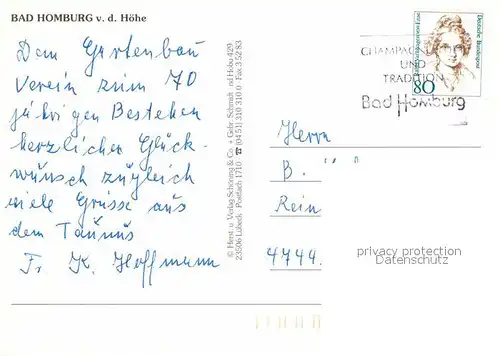 BAD HOMBURG v. d. Höhe
Dem Gartenbau
Verein zum 70
jährigen Bestehen
herzlichen Glück-
wünsch zugleich
viele Grüsse aus
dem Taunus
Fr. K. Hoffmann
© Herst. u. Verlag Schöning & Co. + Gebr. Schmidt
23506 Lübeck Postfach 1710 ☎ (04 51) 310 310 0 Fax 3 52 83
CHAMPAGNERLUFT
UND
TRADITION
Bad Homburg
Deutsche Bundespost
80
Herrn
B. " "
Rein
4744.
privacy protection
Datenschutz